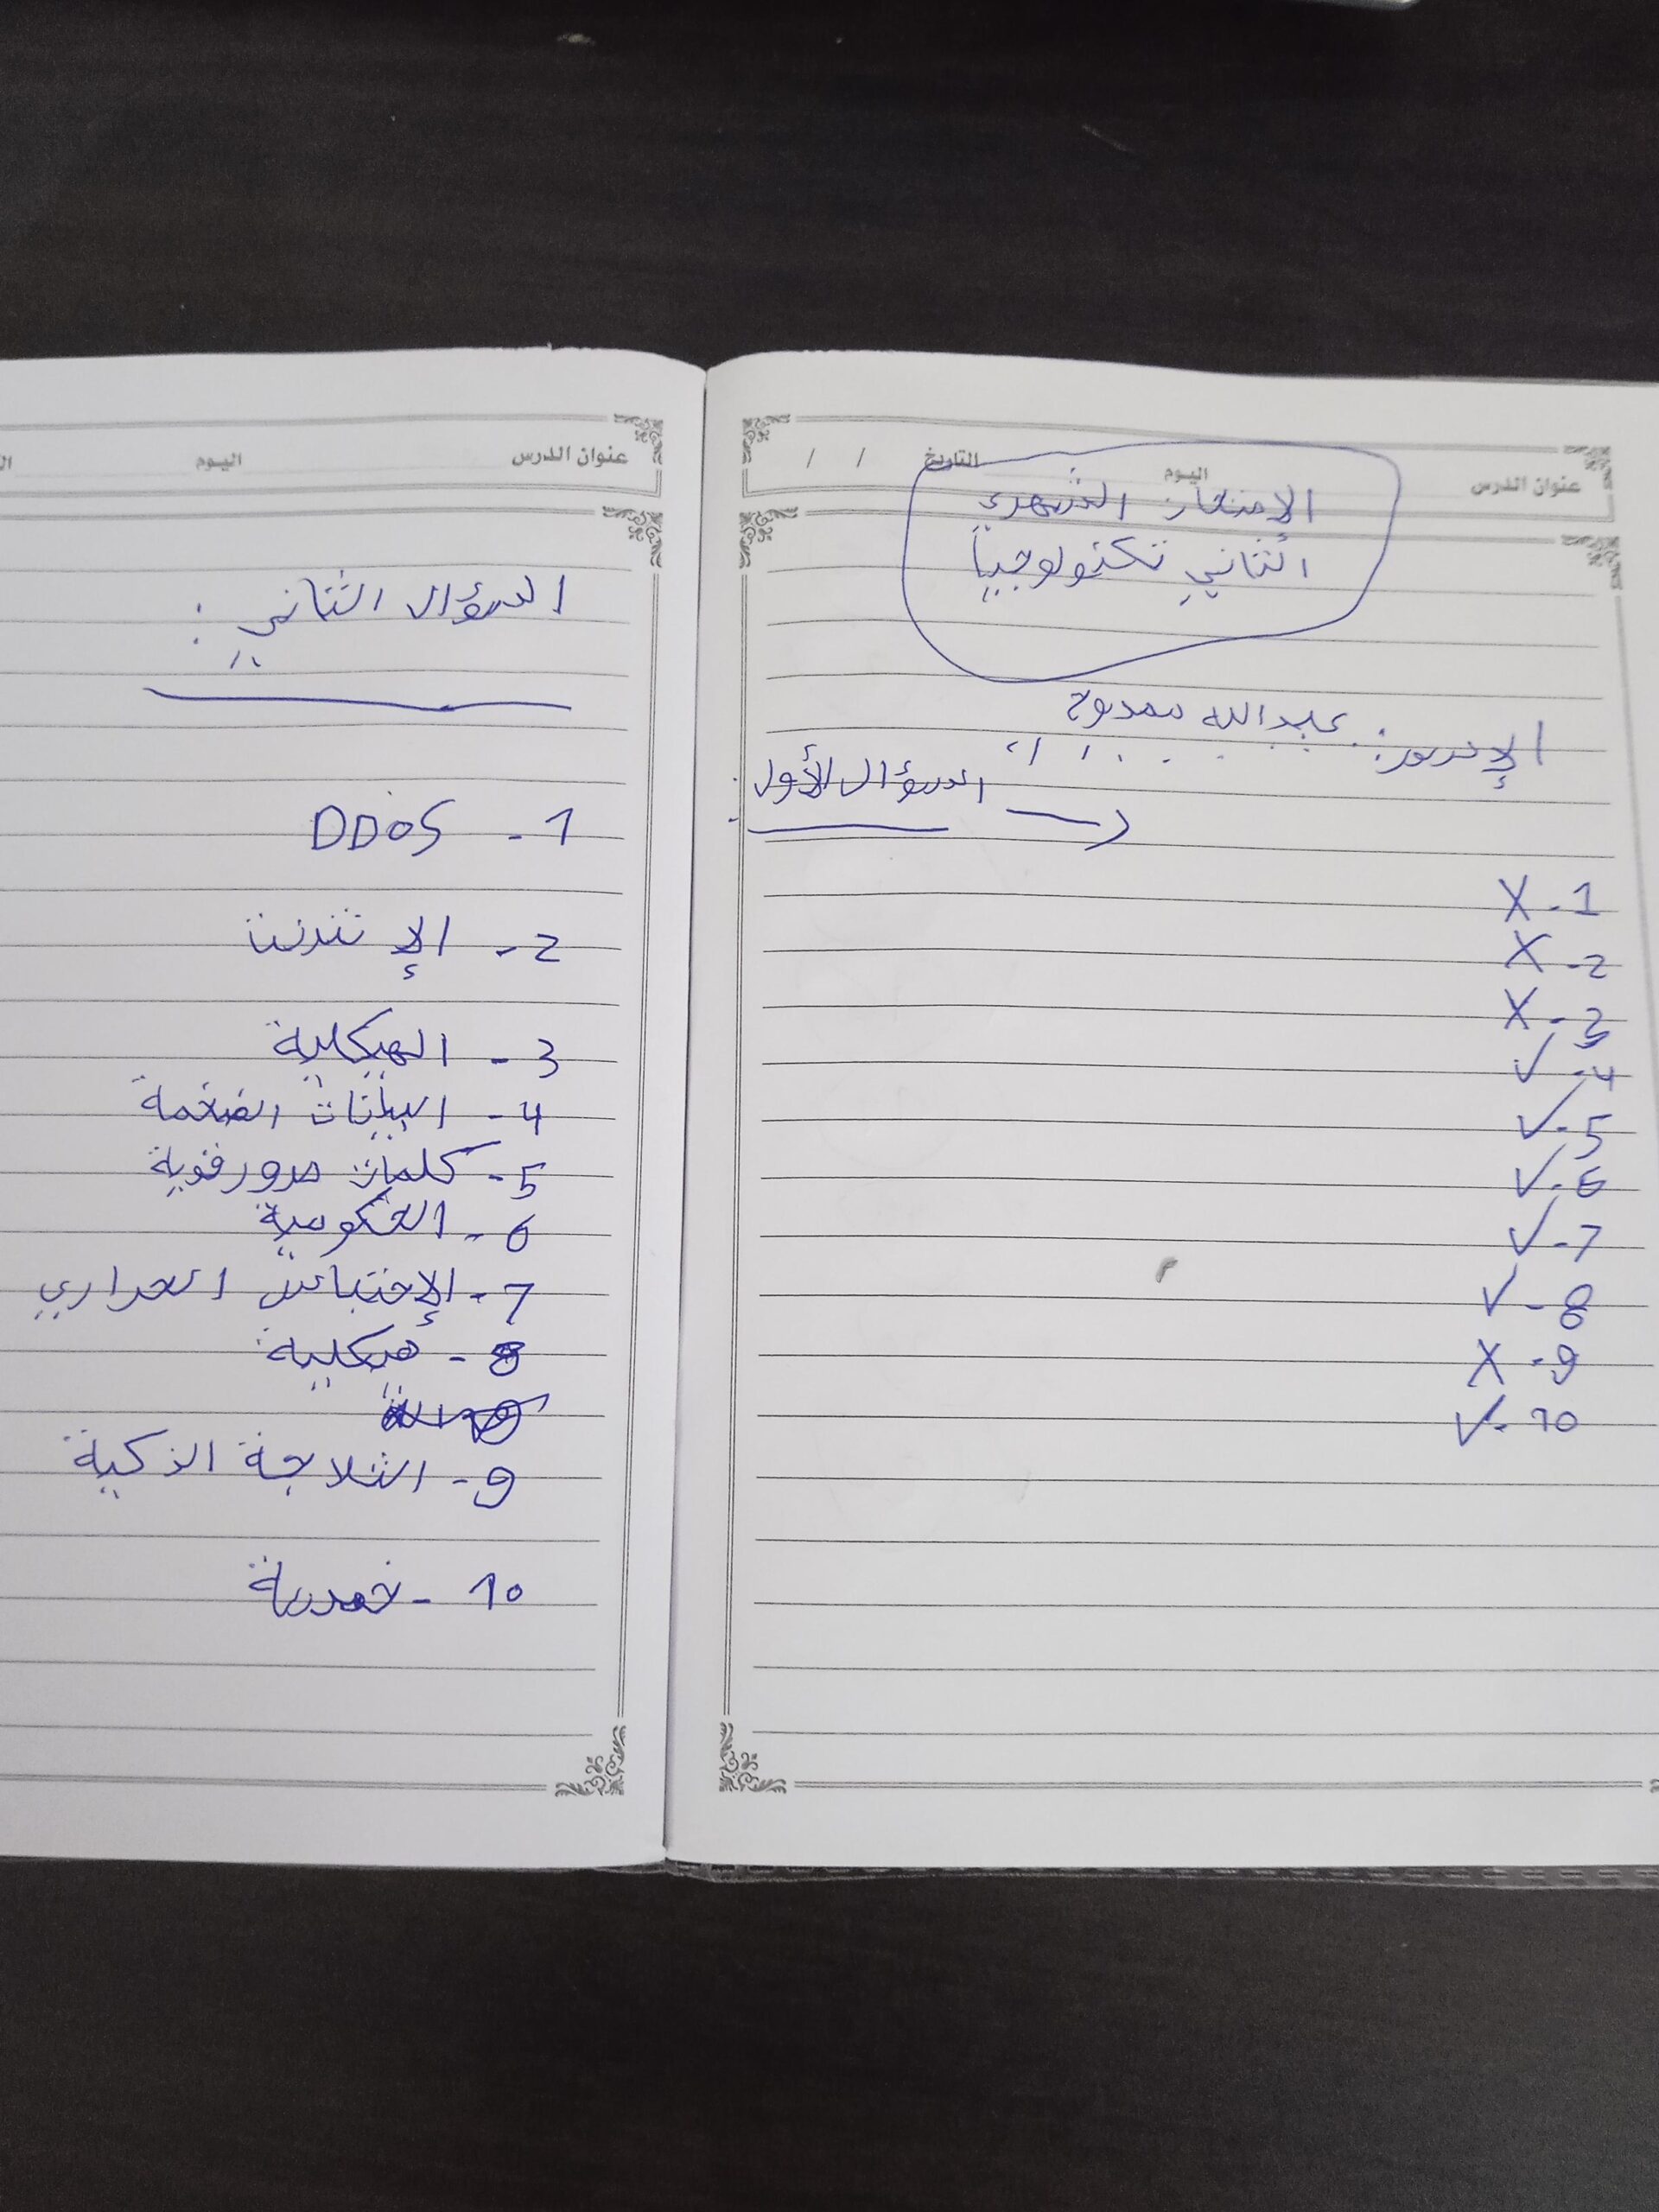 عنوان الدرس اليوم التاريخ / /
الإمتحان الشهري
الثاني تكنولوجيا
الإسم: عبدالله ممدوح
السؤال الأول:
1 - X
2 - X
3 - X
4 - ✓
5 - ✓
6 - ✓
7 - ✓
8 - ✓
9 - X
10 - ✓
عنوان الدرس اليوم
السؤال الثاني:
1 - DDoS
2 - الإنترنت
3 - الهيكلية
4 - البيانات الضخمة
5 - كلمات مرور قوية
6 - الحكومية
7 - الإحتباس الحراري
8 - هيكلية
9 - الثلاجة الذكية
10 -